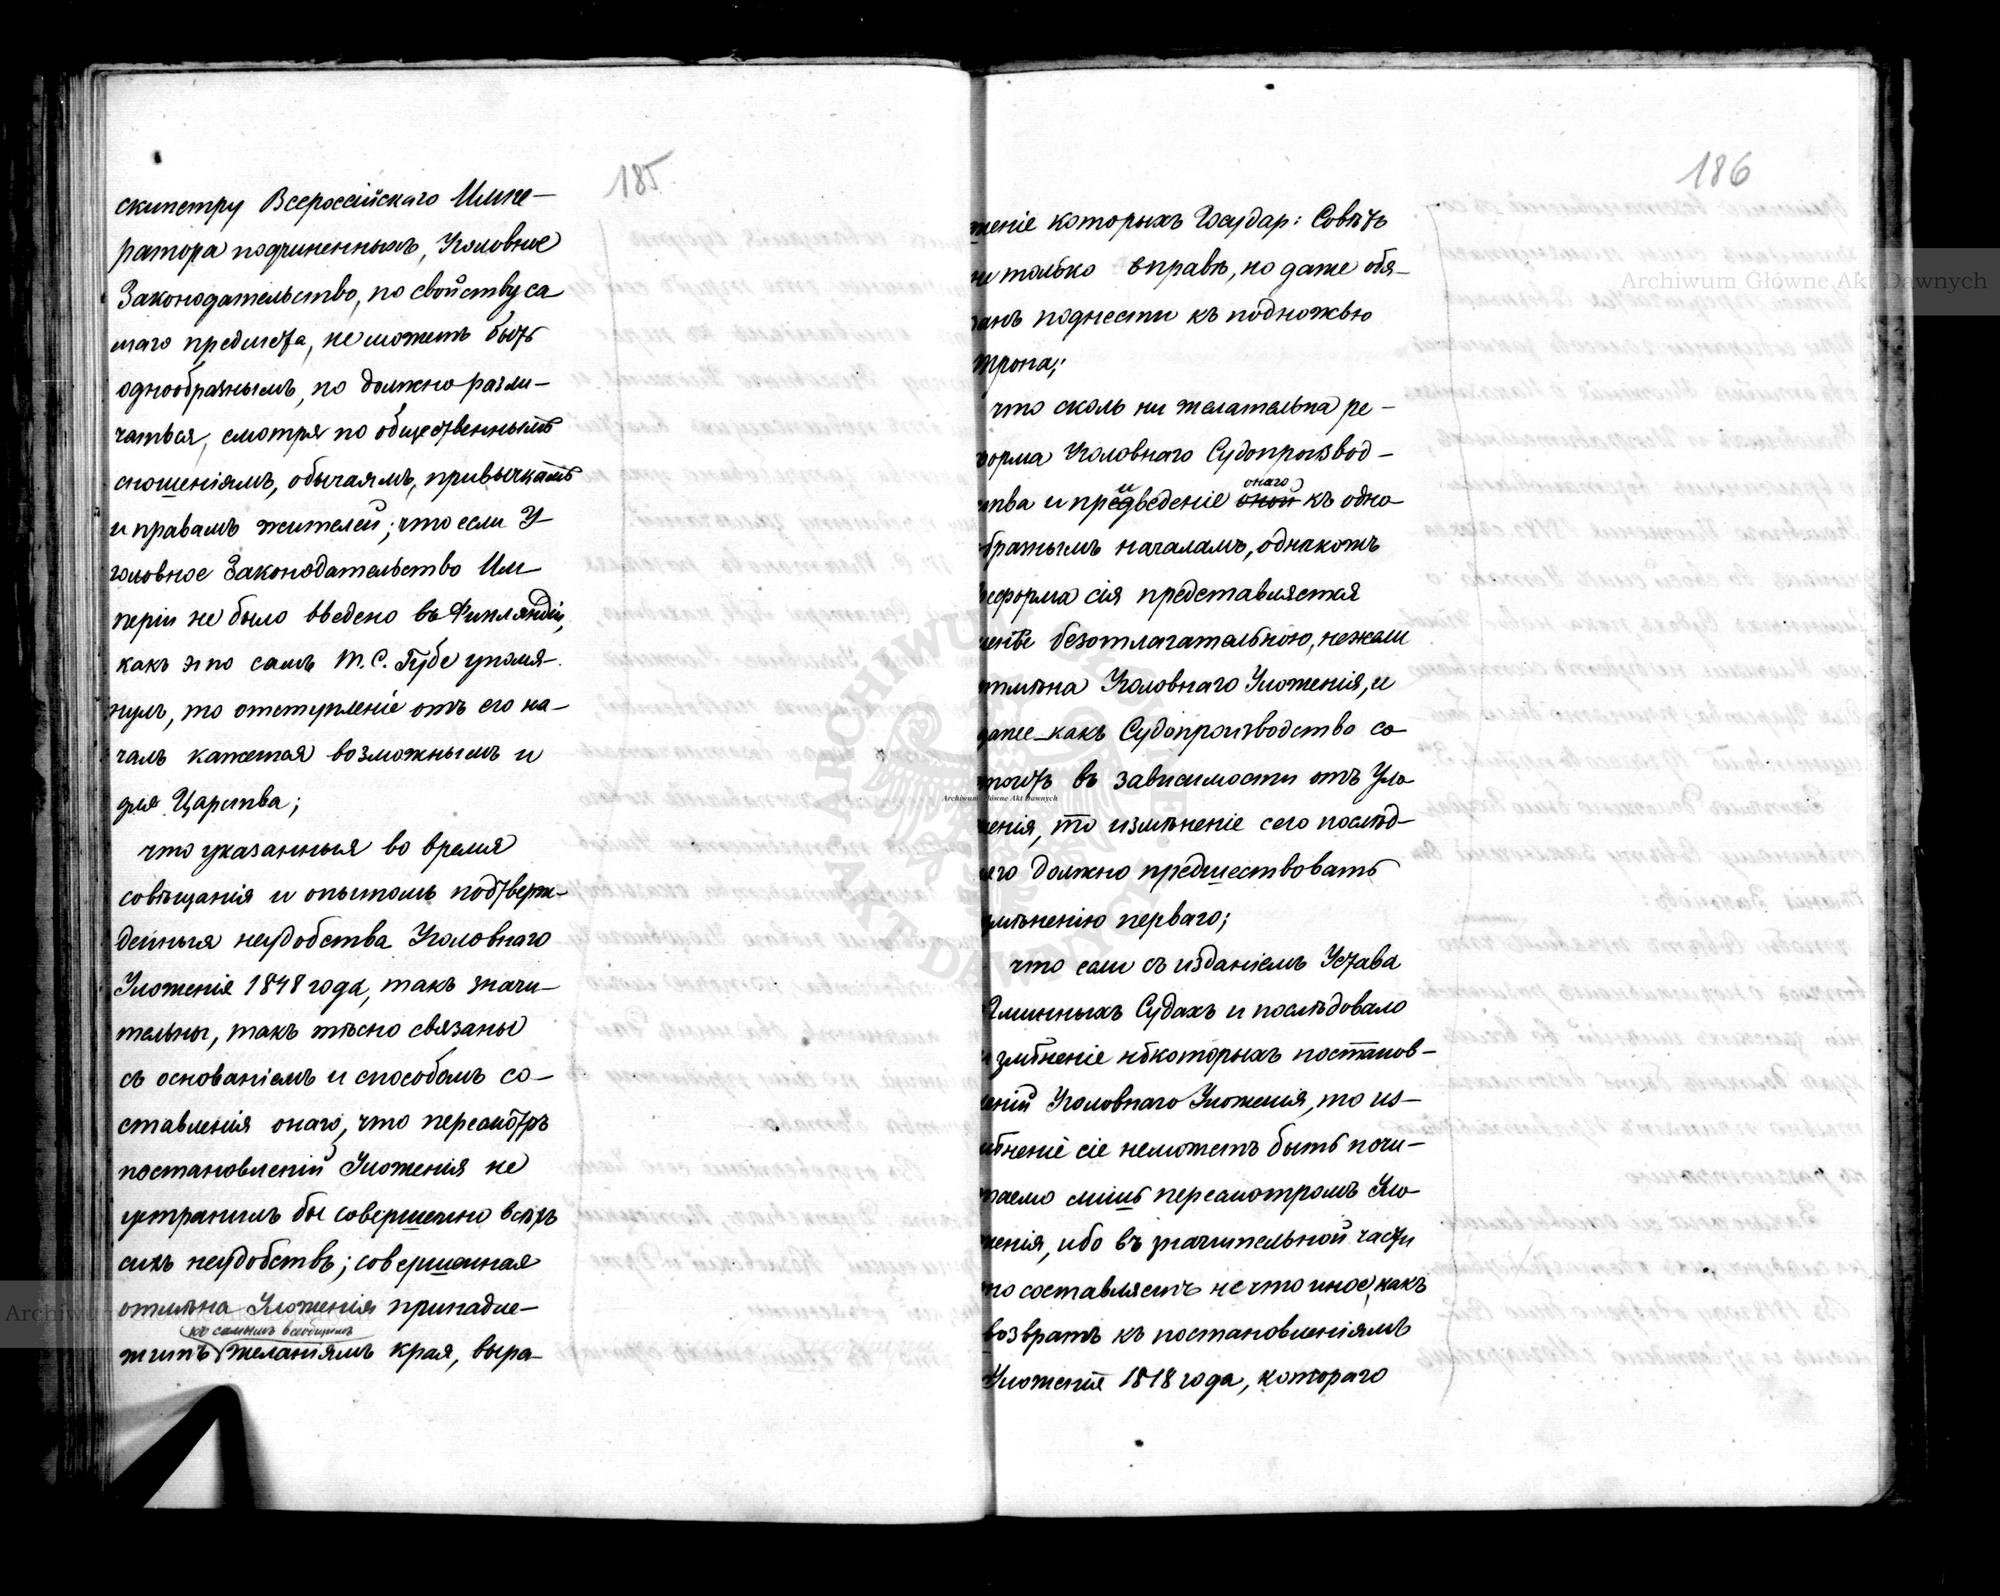 185
скипетру Всероссійскаго Импе–
ратора подчиненныхъ, Уголовное
Законодательство, по свойству са
маго предмета, не можетъ быть
однообразнымъ, но должно разли–
чаться, смотря по общественнымъ
сношеніямъ, обычаямъ, привычкамъ
и правамъ жителей; что если У–
головное Законодательство Им–
періи не было введено въ Финляндіи,
какъ это самъ Т. С. Губе упомя–
нулъ, то отступленіе отъ его на–
чалъ кажется возможнымъ и
для Царства;
что указанныя во время
совѣщанія и опытомъ подтверж–
денныя неудобства Уголовнаго
Уложенія 1848 года, такъ значи–
тельны, такъ тѣсно связаны
съ основаніемъ и способомъ со–
ставленія онаго, что пересмотръ
постановленій Уложенія не
устранилъ бы совершенно всѣхъ
сихъ неудобствъ; совершенная
отмѣна Уложенія принадле–
къ самымъ всеобщимъ
житъ желаніямъ края, выра–
186
женіе которыхъ Государ: Совѣтъ
не только вправѣ, но даже обя–
занъ поднести къ подножью
трона;
что сколь ни желательна ре–
форма Уголовнаго Судопроизвод–
ства и приведеніе оной онаго къ одно
образнымъ началамъ, однакожъ
реформа сія представляется
менѣе безотлагательною, нежели
отмѣна Уголовнаго Уложенія, и
далее какъ Судопроизводство со
стоитъ въ зависимости отъ Уло
женія, то измѣненіе сего послѣд–
няго должно предшествовать
измѣненію перваго;
что если съ изданіемъ Устава
о Гминныхъ Судахъ и послѣдовало
измѣненіе нѣкоторыхъ постанов–
леній Уголовнаго Уложенія, то из–
мѣненіе сіе неможетъ быть почи–
таемо лишь пересмотромъ Уло–
женія, ибо въ значительной части
оно составляетъ не что иное, какъ
возвратъ къ постановленіямъ
Уложенія 1818 года, котораго
Archiwum Główne Akt Dawnych
Archiwum Główne Akt Dawnych
Archiwum Główne Akt Dawnych
ARCHIWUM GŁÓWNE AKT DAWNYCH